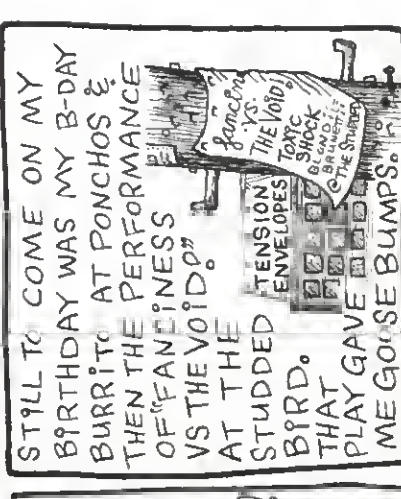 STILL TO COME ON MY
BIRTHDAY WAS MY B-DAY
BURRITO AT PONCHOS &
THEN THE PERFORMANCE
OF "FANCINESS
VS THE VOID"
AT THE
STUDDED
BIRD.
THAT
PLAY GAVE
ME GOOSE BUMPS.
TENSION
ENVELOPES
fanciness
·VS·
THE VOID!
TOXIC
SHOCK
BLONDE
BRUNETTE
@THE STUDDED